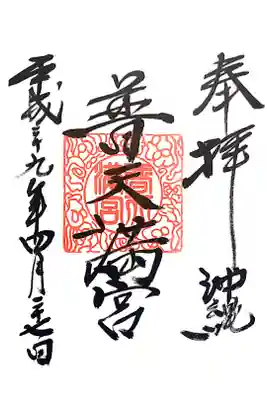 奉拝
沖縄
普天満宮
平成二十九年四月二十七日